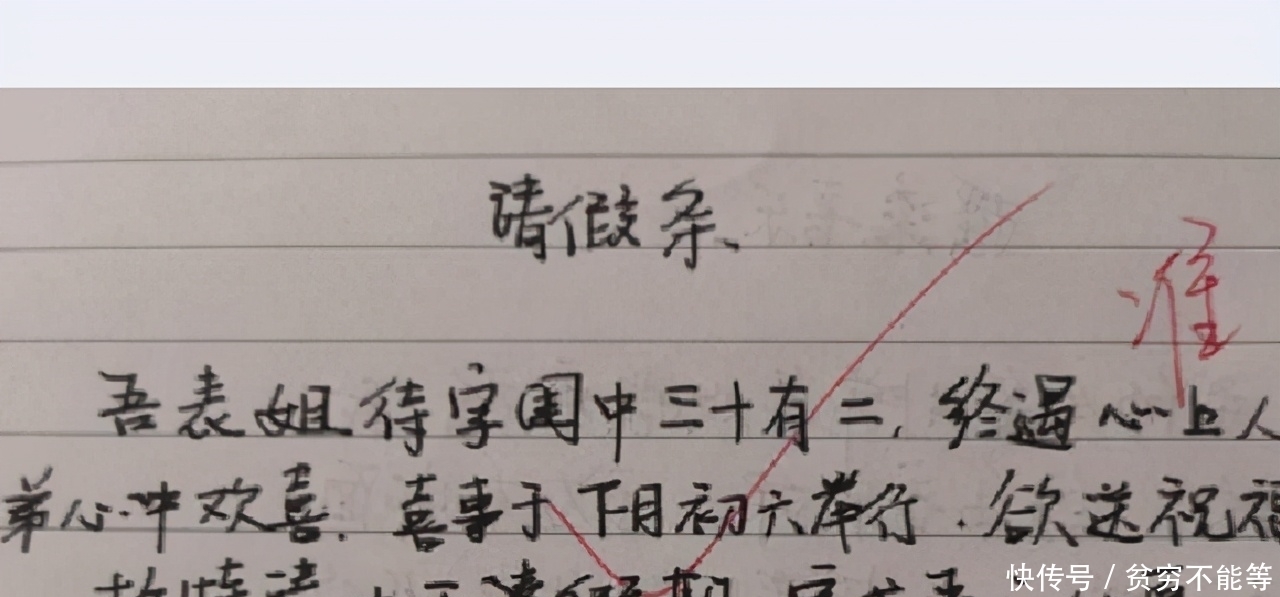 请假条、
准
吾表姐待字闺中三十有二,终遇心上人
弟心中欢喜.喜事于下月初六举行.欲送祝福
故特请
快传号/贫穷不能等